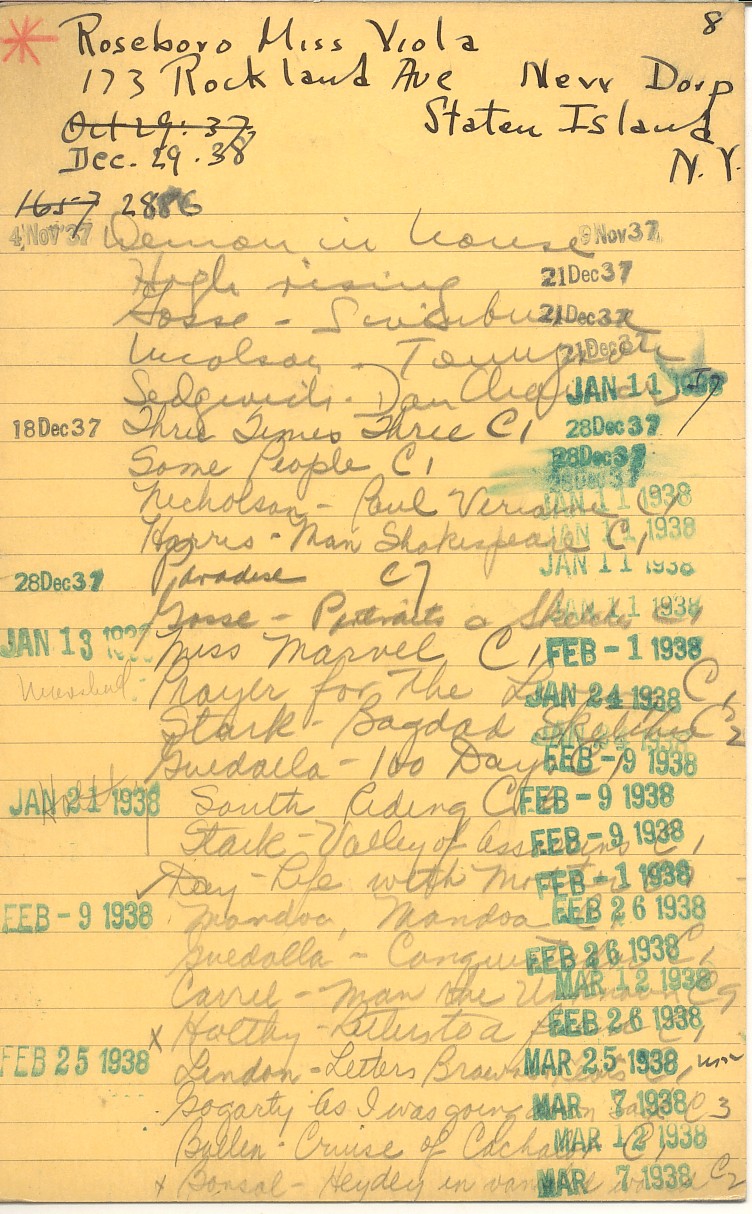 8
Roseboro Miss Viola
173 Rockland Ave New Dorp
Oct 29. 37 Staten Island
Dec. 29. 38 N.Y.
1657 2886
4 Nov 37 Demon in house 9 Nov 37
High rising 21 Dec 37
Gosse - Swinburne 21 Dec 37
Nicolson - Tennyson 21 Dec 37
Sedgwick - Dan JAN 11 1938
18 Dec 37 Three Times Three C1 28 Dec 37
Some People C1 28 Dec 37
Nicholson - Paul Verlaine C1 JAN 11 1938
Harris - Man Shakespeare C1 JAN 11 1938
28 Dec 37 Paradise C7 JAN 11 1938
Gosse - Portraits a Sketches C1 JAN 11 1938
JAN 13 1938 Miss Marvel C1 FEB - 1 1938
Prayer for the C1 JAN 24 1938
Stark - Bagdad Sketches C2
Guedalla - 100 Days C1 FEB - 9 1938
JAN 21 1938 South Riding C FEB - 9 1938
Stark - Valley of Assassins C1 FEB - 9 1938
Day - Life with Mother FEB - 1 1938
FEB - 9 1938 Mandoa, Mandoa C1 FEB 26 1938
Guedalla - C1 FEB 26 1938
Carrel - Man the Unknown C9 MAR 12 1938
x Holtby - Letters to a friend C1 FEB 26 1938
FEB 25 1938 Letters C1 MAR 25 1938
Gogarty As I was going down C3 MAR 7 1938
Bullen - Cruise of Cachalot C1 MAR 12 1938
x Bonsal - Heydey in C2 MAR 7 1938